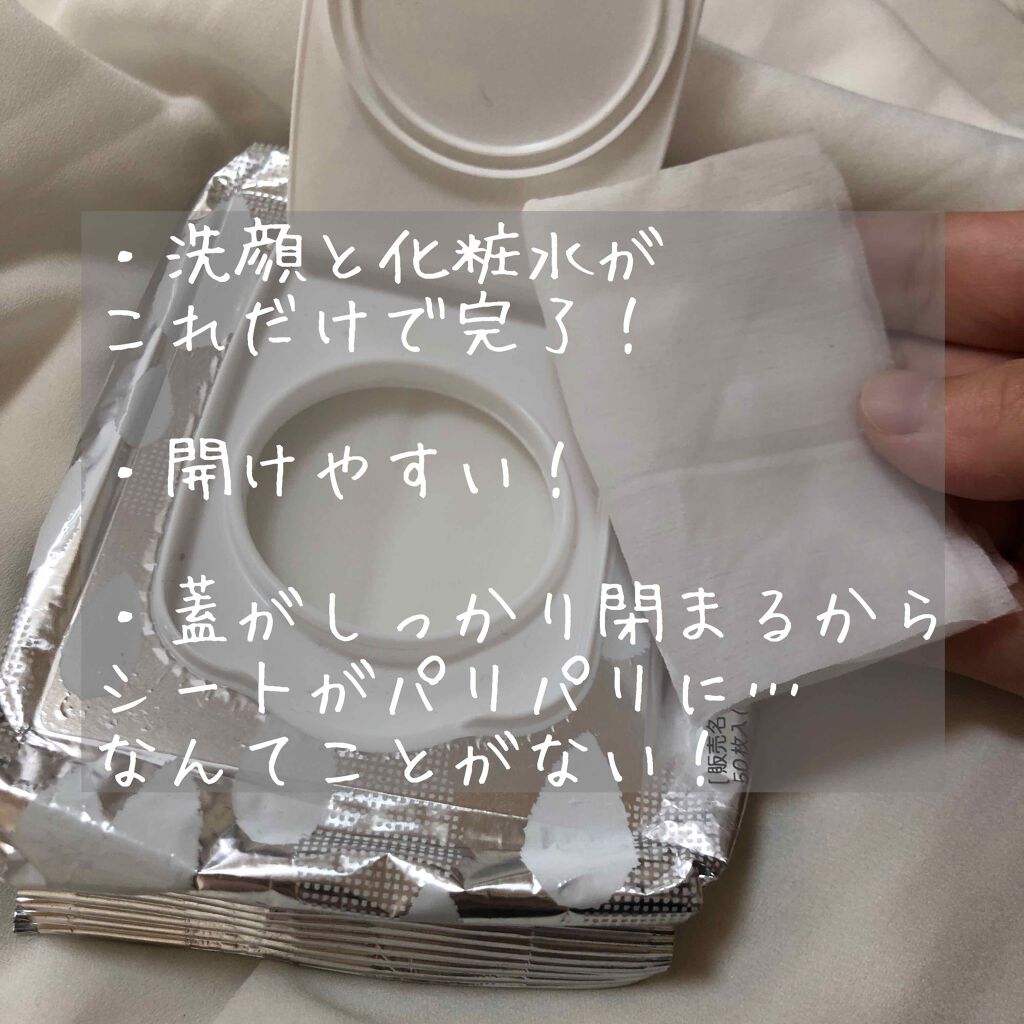 ・洗顔と化粧水が
これだけで完了！
・開けやすい！
・蓋がしっかり閉まるから
シートがパリパリに…
なんてことがない！
[販売名
50枚入(